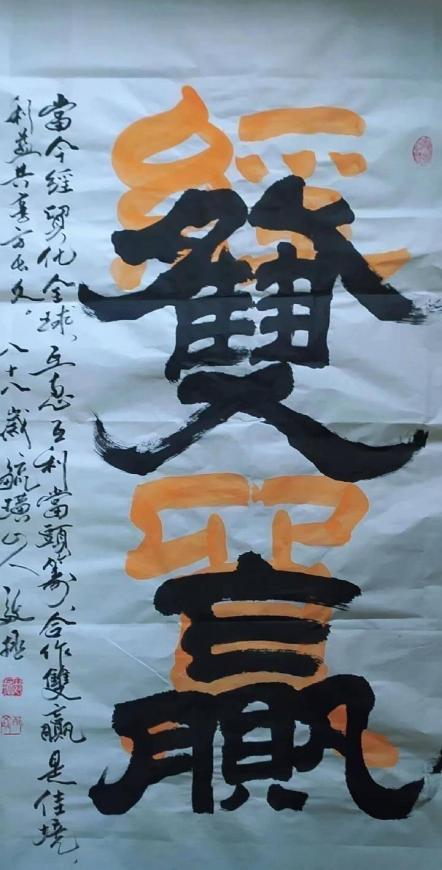 經貿
雙贏
當今經貿化全球、互惠互利當頭籌、合作雙贏是佳境、
利益共享方長久。八十八歲毓璜山人